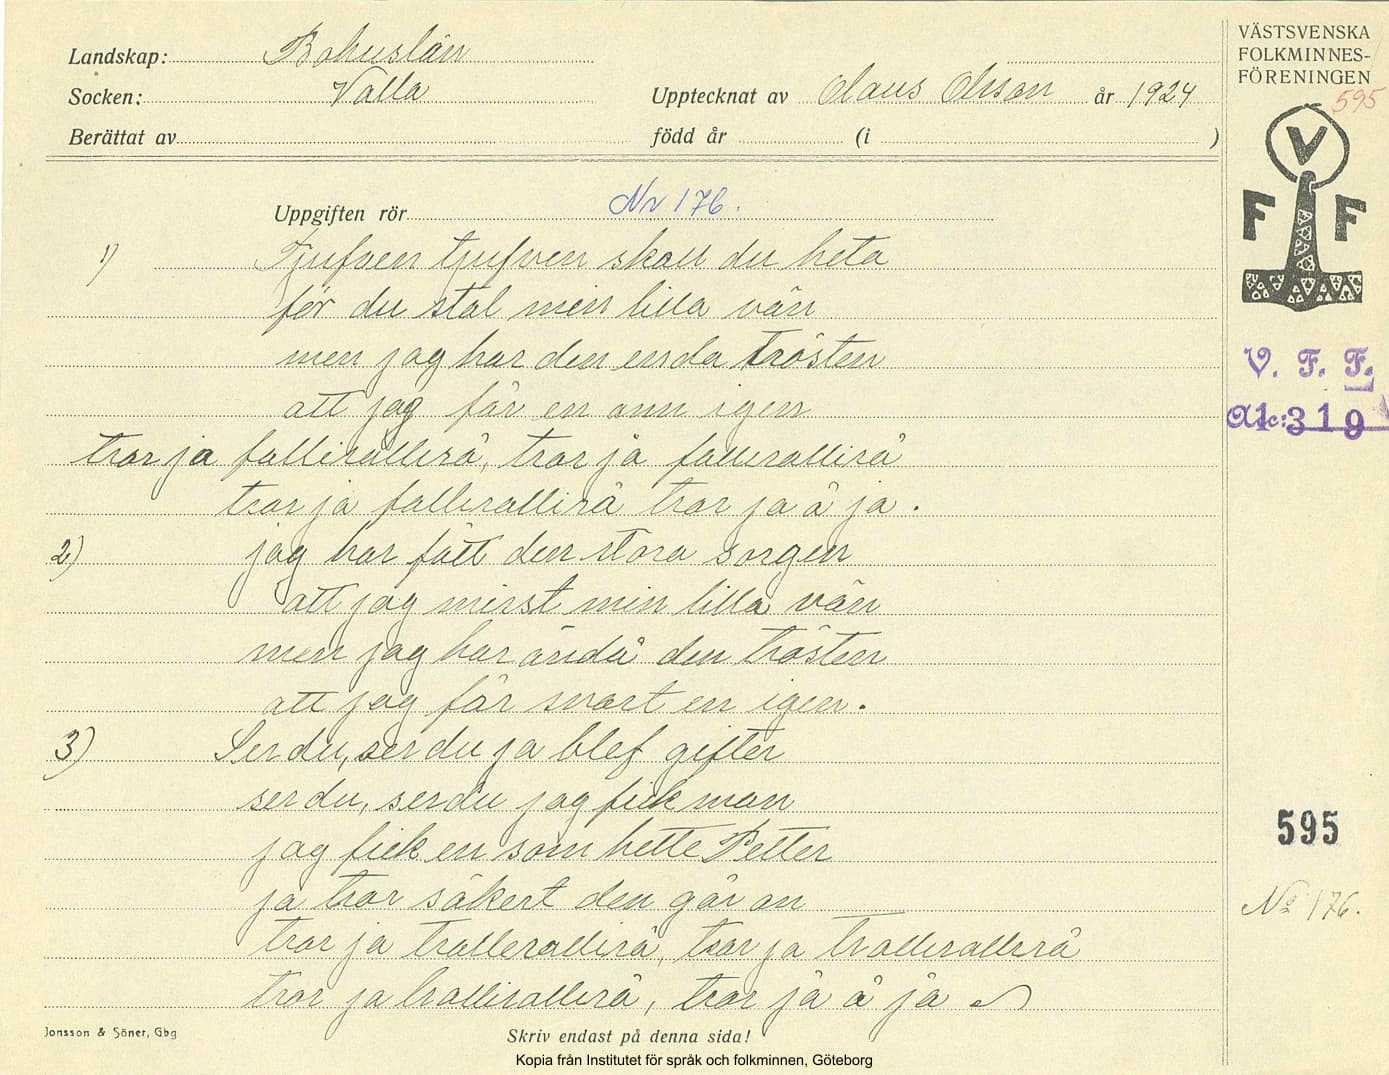 Landskap: Bohuslän
Socken: Valla
Upptecknat av Olaus Olsson år 1924
Berättat av
född år (i )
Uppgiften rör Nr 176.
1) Tjufven tjufven skall du heta
för du stal min lilla vän
men jag har den enda trösten
att jag får en ann igen
tror ja fallirallerå, tror ja fallerallirå
tror ja fallerallirå tror ja å ja.
2) jag har fått den stora sorgen
att jag misst min lilla vän
men jag har ändå den trösten
att jag får snart en igen.
3) Ser du, ser du ja blef gifter
ser du, ser du jag fick man
jag fick en som hette Petter
ja tror säkert den går an
tror ja trallerallirå, tror ja trallerallerå
tror ja trallirallerå, tror ja å ja
Jonsson & Söner, Gbg
Skriv endast på denna sida!
Kopia från Institutet för språk och folkminnen, Göteborg
VÄSTSVENSKA
FOLKMINNES-
FÖRENINGEN
595
V
F F
V. F. F.
Acc: 319
595
No 176.